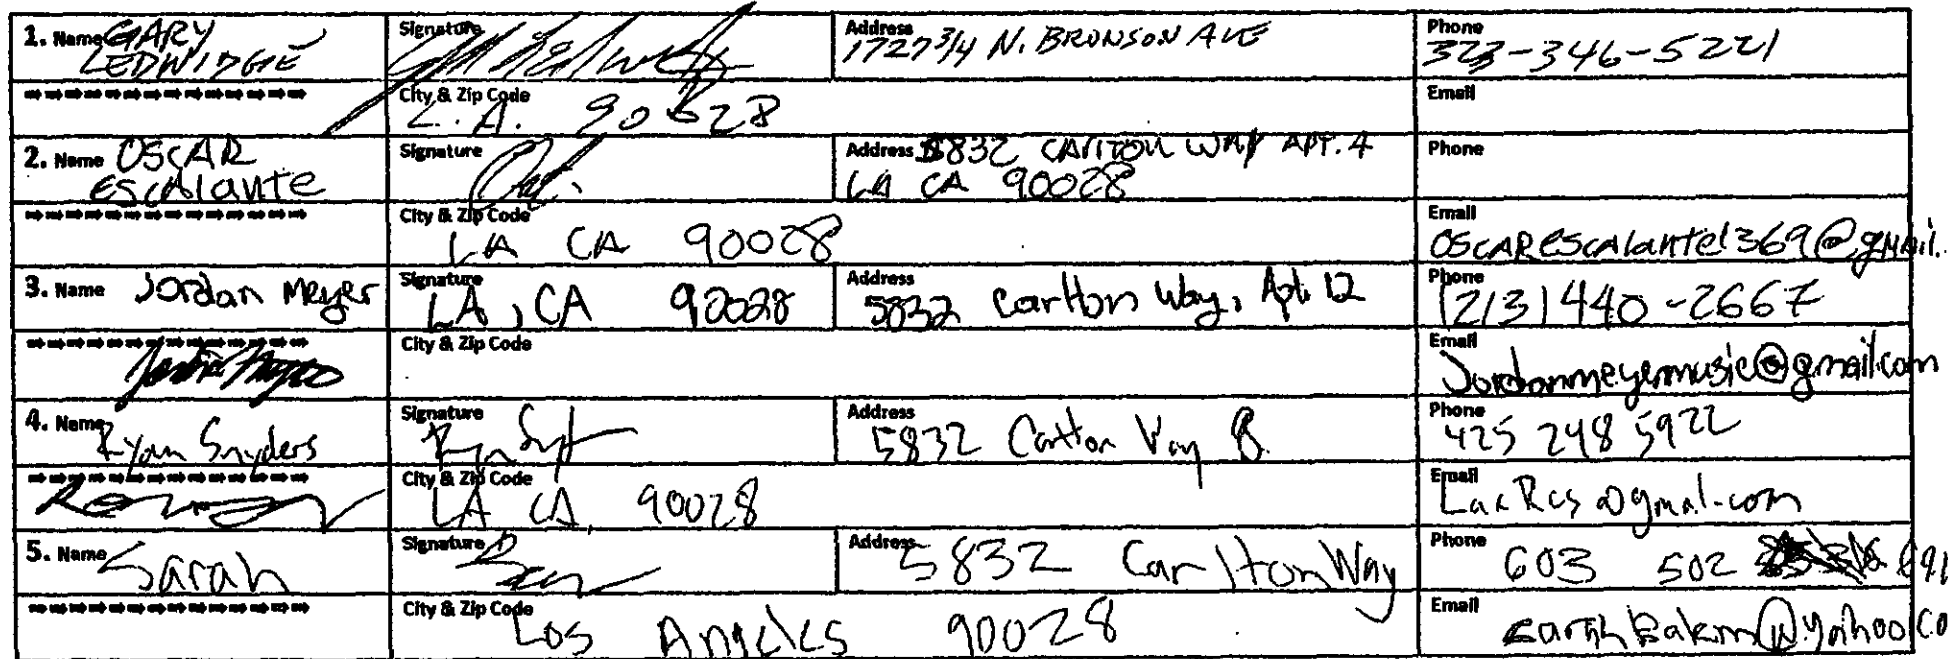 1. Name GARY LEDWIDGE Signature Address 1727 3/4 N. BRONSON AVE Phone 323-346-5221
City & Zip Code L.A. 90028 Email
2. Name OSCAR Escalante Signature Address 5832 CARLTON WAY APT. 4 LA CA 90028 Phone
City & Zip Code LA CA 90028 Email OSCARESCALANTE1369@gmail.
3. Name Jordan Meyer Signature LA, CA 90028 Address 5832 Carlton Way, Apt. 12 Phone (213) 440-2667
City & Zip Code Email Jordanmeyermusic@gmail.com
4. Name Ryan Snyders Signature Address 5832 Carlton Way Phone 425 248 5922
City & Zip Code LA CA 90028 Email
5. Name Sarah Signature Address 5832 Carlton Way Phone 603 502
City & Zip Code Los Angeles 90028 Email